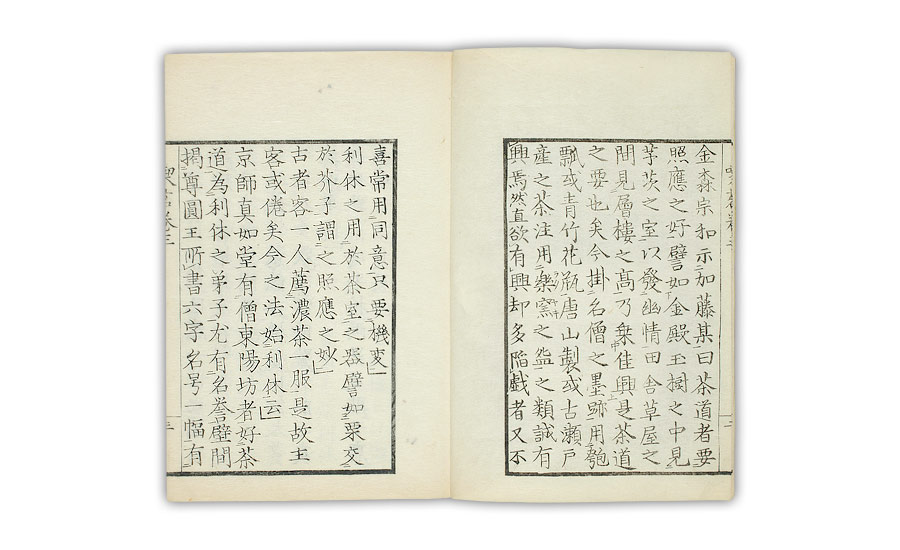 金森宗扣示加藤某曰茶道者要
照應之好譬如金殿玉樹之中見
茅茨之室以發幽情田舎草屋之
間見層樓之高乃乗佳興是茶道
之要也矣今掛名僧之墨跡用匏
瓢或青竹花瓶唐山製或古瀬戸
産之茶注用樂窯之盌之類誠有
興焉然直欲有興却多陥戯者又不
喜常用同意只要機変
利休之用於茶室之器譬如粟交
於芥子謂之照應之妙
古者客一人薦濃茶一服是故主
客或倦矣今之法始利休云
京師真如堂有僧東陽坊者好茶
道為利休之弟子尤有名誉壁間
掲尊圓王所書六字名号一幅有